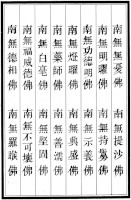 南無無憂佛 南無提沙佛
南無明曜佛 南無持鬘佛
南無功德明佛 南無示義佛
南無燈曜佛 南無興盛佛
南無藥師佛 南無善濡佛
南無白毫佛 南無堅固佛
南無福威德佛 南無不可壞佛
南無德相佛 南無羅睺佛